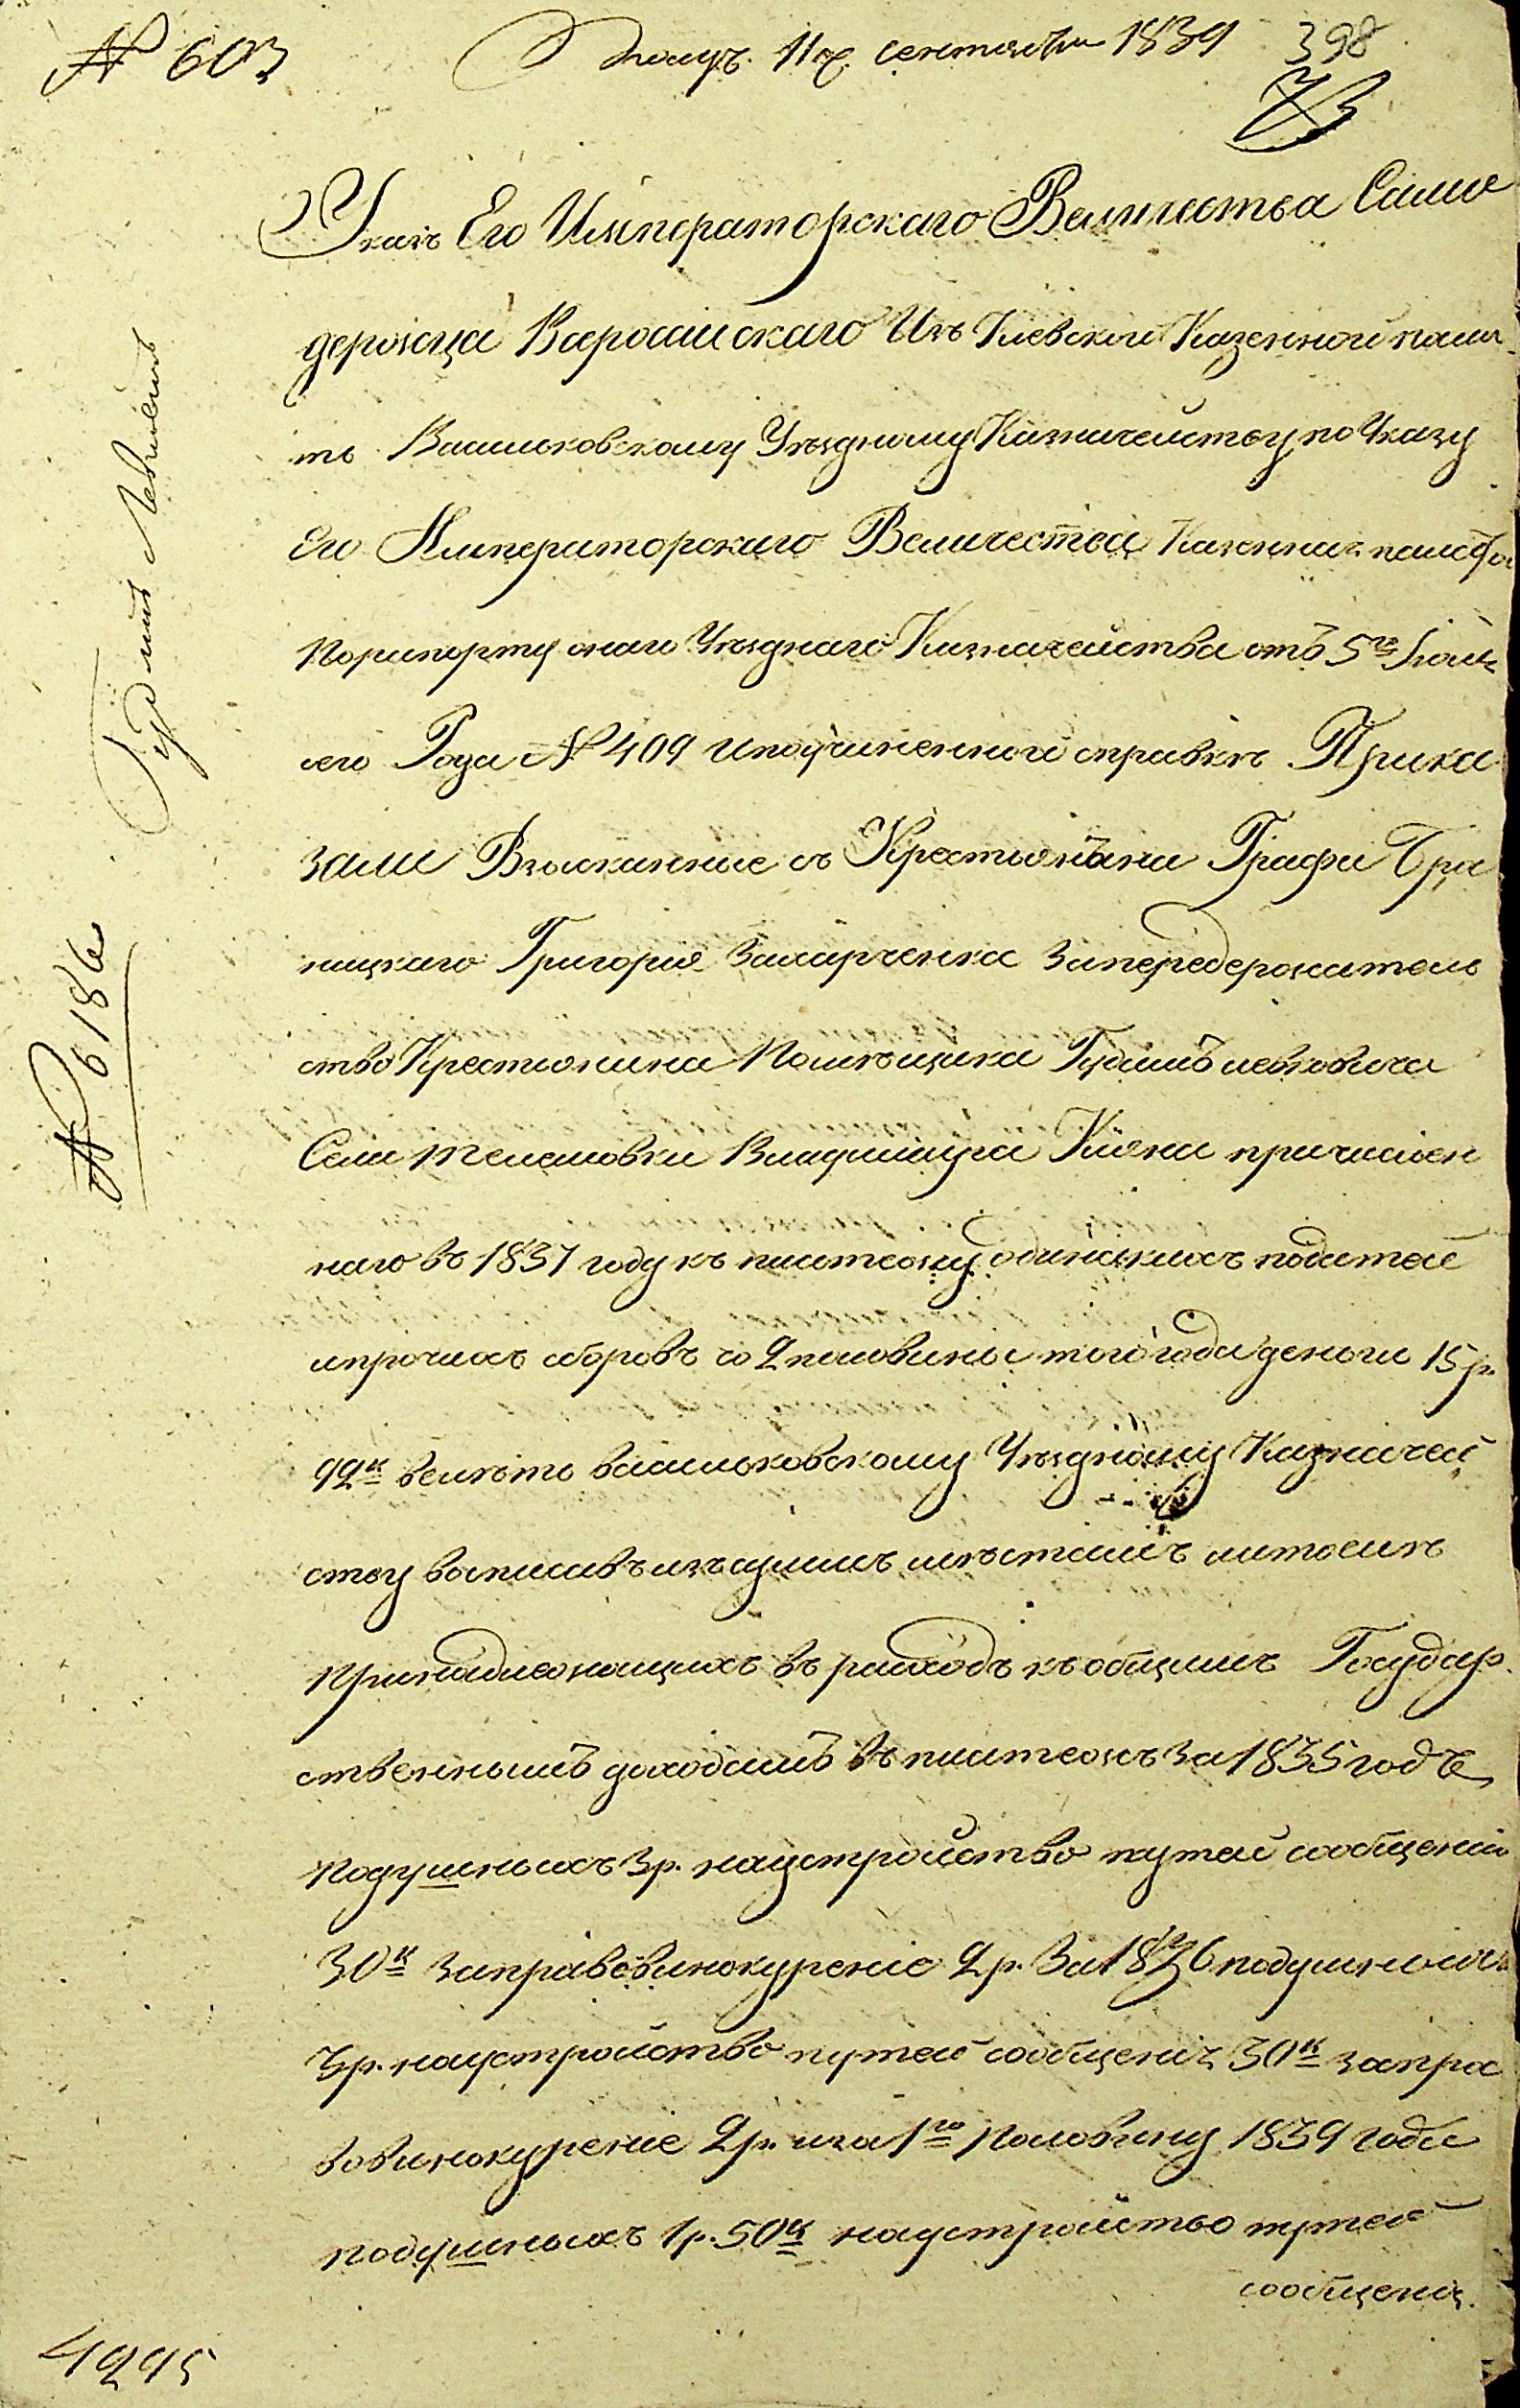 № 603
Получ. 11 сентября 1839
398
Указъ Его Императорскаго Величества Само
держца Всероссийскаго Изъ Киевской Казенной пала
ты Васильковскому Уездному Казначейству по Указу
Его Императорскаго Величества Казенная палата
По рапорту онаго Уезднаго Казначейства отъ 5го
сего Года № 409 и по учиненной справкѣ Прика
зали Взысканные съ Крестьянина Графа Бра
ницкаго Григорія Захарченка за передержатель
ство Крестьянина Помѣщика
Села Телешовки Владимира причислен
наго въ 1837 году къ платежу податей
и прочихъ сборовъ со 2 половины того года деньги 15 р.
92к велѣть васильковскому Уездному Казначей
ству выписавъ изъ суммъ мѣстамъ
Принадлежащихъ въ расходъ къ общимъ Государ
ственнымъ доходамъ въ платежъ за 1835 годъ
Подушныхъ 3р. на устройство путей сообщенія
30к за право винокуреніе 2р. За 1836 подушныхъ
3р. на устройство путей сообщенія 30к за пра
во винокуреніе 2р. и за 1ю Половину 1839 года
подушныхъ 1р. 50к на устройство путей
сообщенія
№ 6186
4295